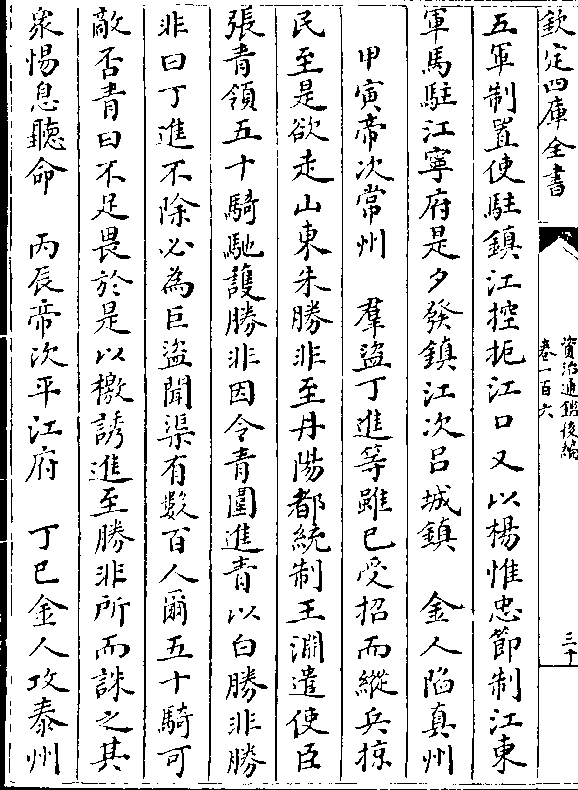 欽定四庫全書
資治通鑑後編
卷一百六
三十
五軍制置使駐鎮江控扼江口又以楊惟忠節制江東
軍馬駐江寧府是夕發鎮江次吕城鎮　金人陷真州
甲寅帝次常州　羣盜丁進等雖已受招而縱兵掠
民至是欲走山東朱勝非至丹陽都統制王淵遣使臣
張青領五十騎馳護勝非因令青圖進青以白勝非勝
非曰丁進不除必為巨盜聞渠有數百人爾五十騎可
敵否青曰不足畏於是以檄誘進至勝非所而誅之其
衆惕息聽命　丙辰帝次平江府　丁巳金人攻泰州